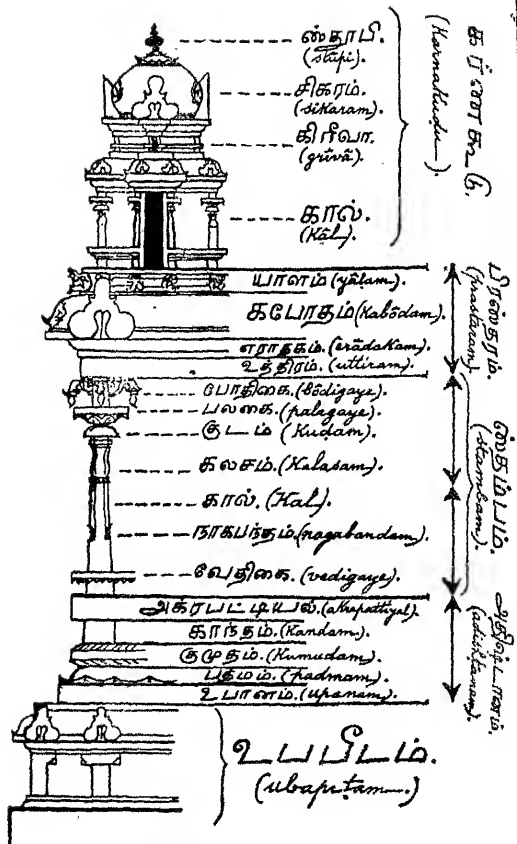 ஸ்தூபி.
(stúpi).
சிகரம்.
(sikaram).
கிரீவா.
(grivâ).
கால்.
(kâl).
கர்ணகூடு.
(Karnakudu).
யாளம் (yâlam).
கபோதம் (Kabôdam).
எராதகம். (êrâdakam).
உத்திரம். (uttiram).
பிரஸ்தரம்.
(prastaram).
போதிகை. (bôdigaye).
பலகை. (palagaye).
குடம் (Kuḍam).
கலசம். (Kalasam).
கால். (Kal).
நாகபந்தம். (nagabandam).
வேதிகை. (vedigaye).
ஸ்தம்பம்.
(stambam).
அக்ரபட்டியல். (akrapattiyal).
காந்தம். (Kandam).
குமுதம். (Kumudam).
பத்மம். (padmam).
உபானம். (upanam).
அதிஷ்டானம்.
(adishtanam).
உபபீடம்.
(ubapitam).